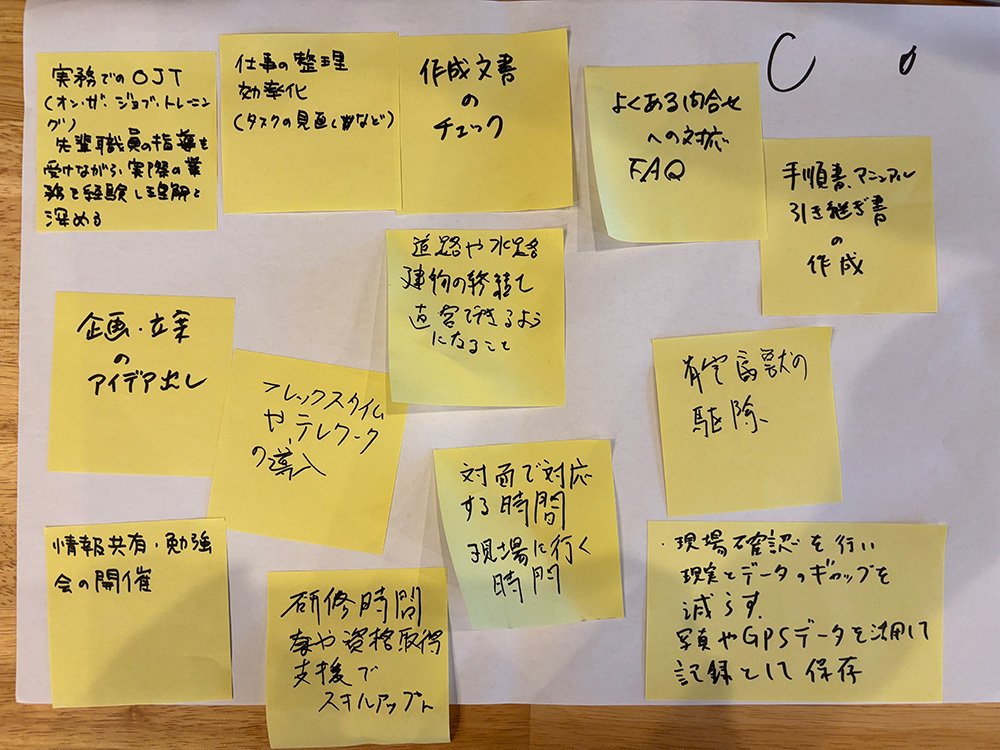 実務でのOJT
(オン・ザ・ジョブ・トレーニ
ング)
先輩職員の指導を
受けながら、実際の業
務を経験し理解を
深める
仕事の整理
効率化
(タスクの見直しなど)
作成文書
の
チェック
よくある問合せ
への対応
FAQ
手順書、マニュアル
引き継ぎ書
の
作成
道路や水路
建物の修繕を
直営できるよう
になること
企画・立案
の
アイデア出し
フレックスタイム
や、テレワーク
の導入
有害鳥獣の
駆除
対面で対応
する時間
現場に行く
時間
情報共有・勉強
会の開催
研修時間
や資格取得
支援で
スキルアップ
・現場確認を行い
現実とデータのギャップを
減らす。
写真やGPSデータを活用して
記録として保存